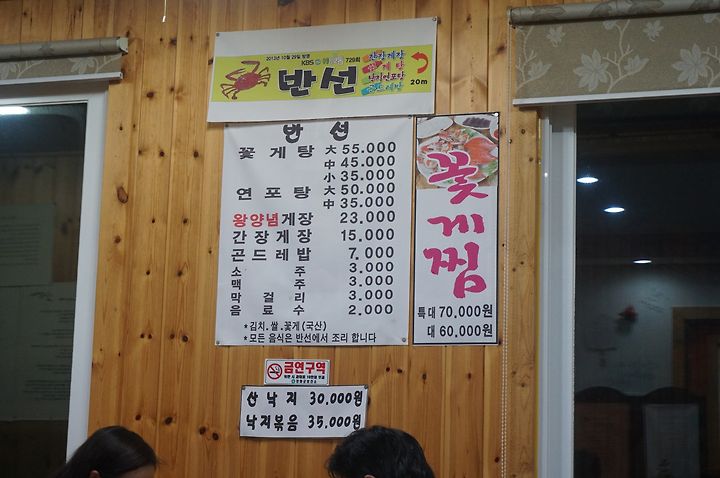 2013년 10월 29일 방영
KBS 729회
반선
간장게장
꽃게탕
낙지연포탕
20m
반선
꽃게탕 大 55.000
中 45.000
小 35.000
연포탕 大 50.000
中 35.000
왕양념게장 23.000
간장게장 15.000
곤드레밥 7.000
소주 3.000
맥주 3.000
막걸리 3.000
음료수 2.000
*김치.쌀.꽃게(국산)
*모든 음식은 반선에서 조리 합니다
꽃게찜
특대 70,000원
대 60,000원
금연구역
산낙지 30,000원
낙지볶음 35,000원